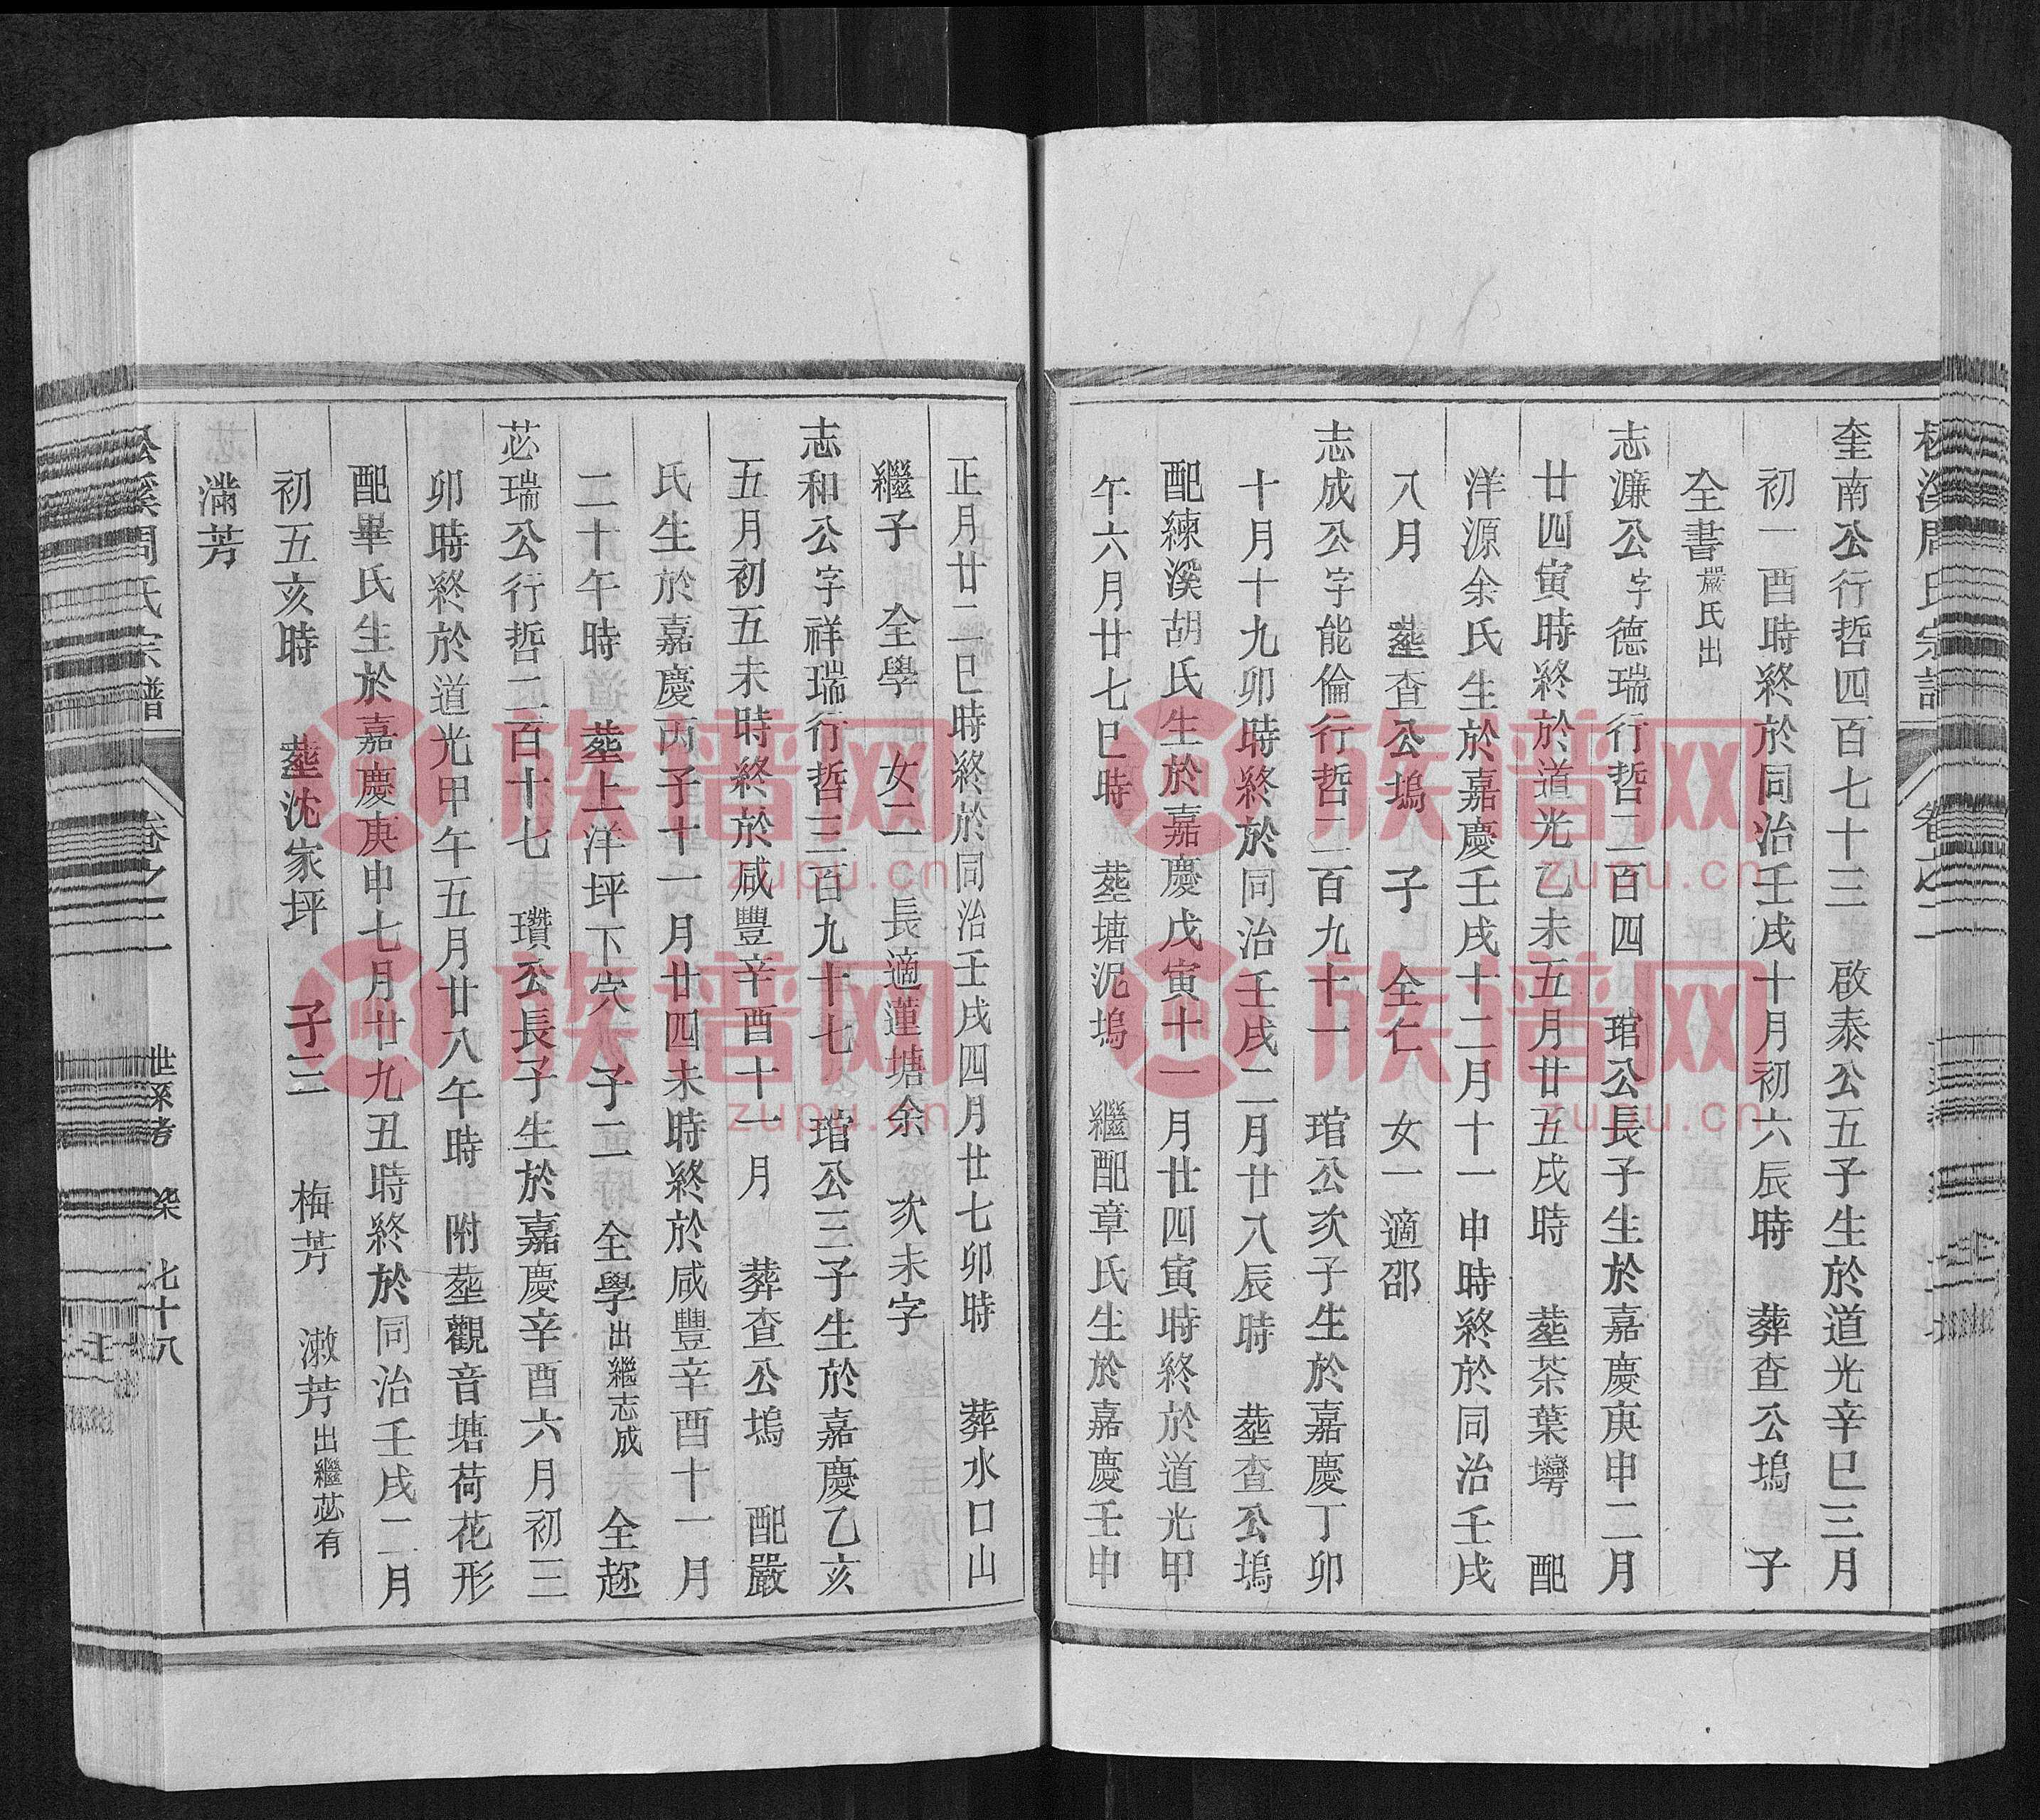 奎南公行哲四百七十三 啟泰公五子生於道光辛巳三月
初一酉時終於同治壬戌十月初六辰時 葬查公塢 子
全書嚴氏出
志濂公字德瑞行哲二百四 琯公長子生於嘉慶庚申二月
廿四寅時終於道光乙未五月廿五戌時 塟茶葉塆 配
洋源余氏生於嘉慶壬戌十二月十一申時終於同治壬戌
八月 塟查公塢 子 全仁 女一適邵
志成公字能倫行哲二百九十一 琯公次子生於嘉慶丁卯
十月十九卯時終於同治壬戌二月廿八辰時 塟查公塢
配練溪胡氏生於嘉慶戊寅十一月廿四寅時終於道光甲
午六月廿七巳時 塟塘泥塢 繼配章氏生於嘉慶壬申
正月廿二巳時終於同治壬戌四月廿七卯時 葬水口山
繼子 全學 女二 長適蓮塘余 次未字
志和公字祥瑞行哲三百九十七 琯公三子生於嘉慶乙亥
五月初五未時終於咸豐辛酉十一月 葬查公塢 配嚴
氏生於嘉慶丙子十一月廿四未時終於咸豐辛酉十一月
二十午時 塟上洋坪下穴 子二 全學出繼志成 全趂
苾瑞公行哲二百十七 瓚公長子生於嘉慶辛酉六月初三
卯時終於道光甲午五月廿八午時 附塟觀音塘荷花形
配畢氏生於嘉慶庚申七月廿九丑時終於同治壬戌二月
初五亥時 塟沈家坪 子三 梅芳 漱芳出繼苾有
滿芳
溪周氏宗譜 卷之二 世系考 柒 七十八
族谱网
zupu.cn
族谱网
zupu.cn
族谱网
zupu.cn
族谱网
zupu.cn